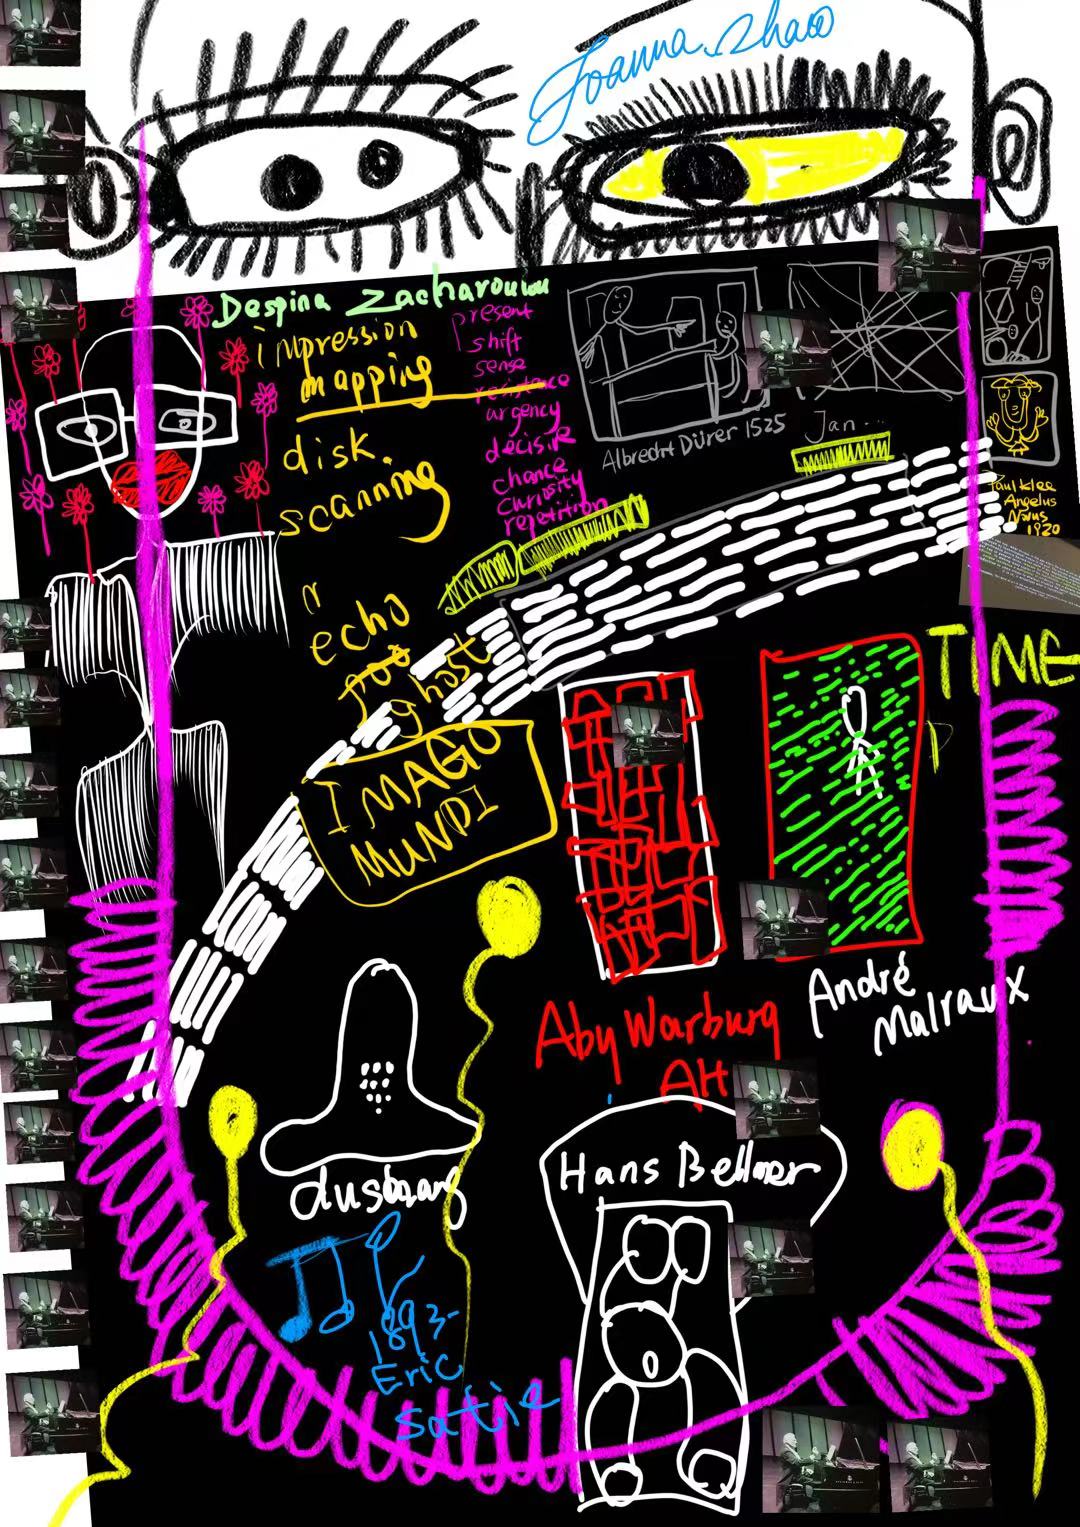 Joanna.Zhao
Despina Zacharoulou
impression
mapping
disk.
scanning
present
shift
sense
resistence
urgency
decisive
chance
curiosity
repetition
Albrecht Dürer 1525
Jan...
Paul Klee
Angelus
Novus
1920
echo
ghost
TIME
IMAGO
MUNDI
Aby Warburg
AH
André
Malraux
Hans Bellmer
1893-
Eric
Satie